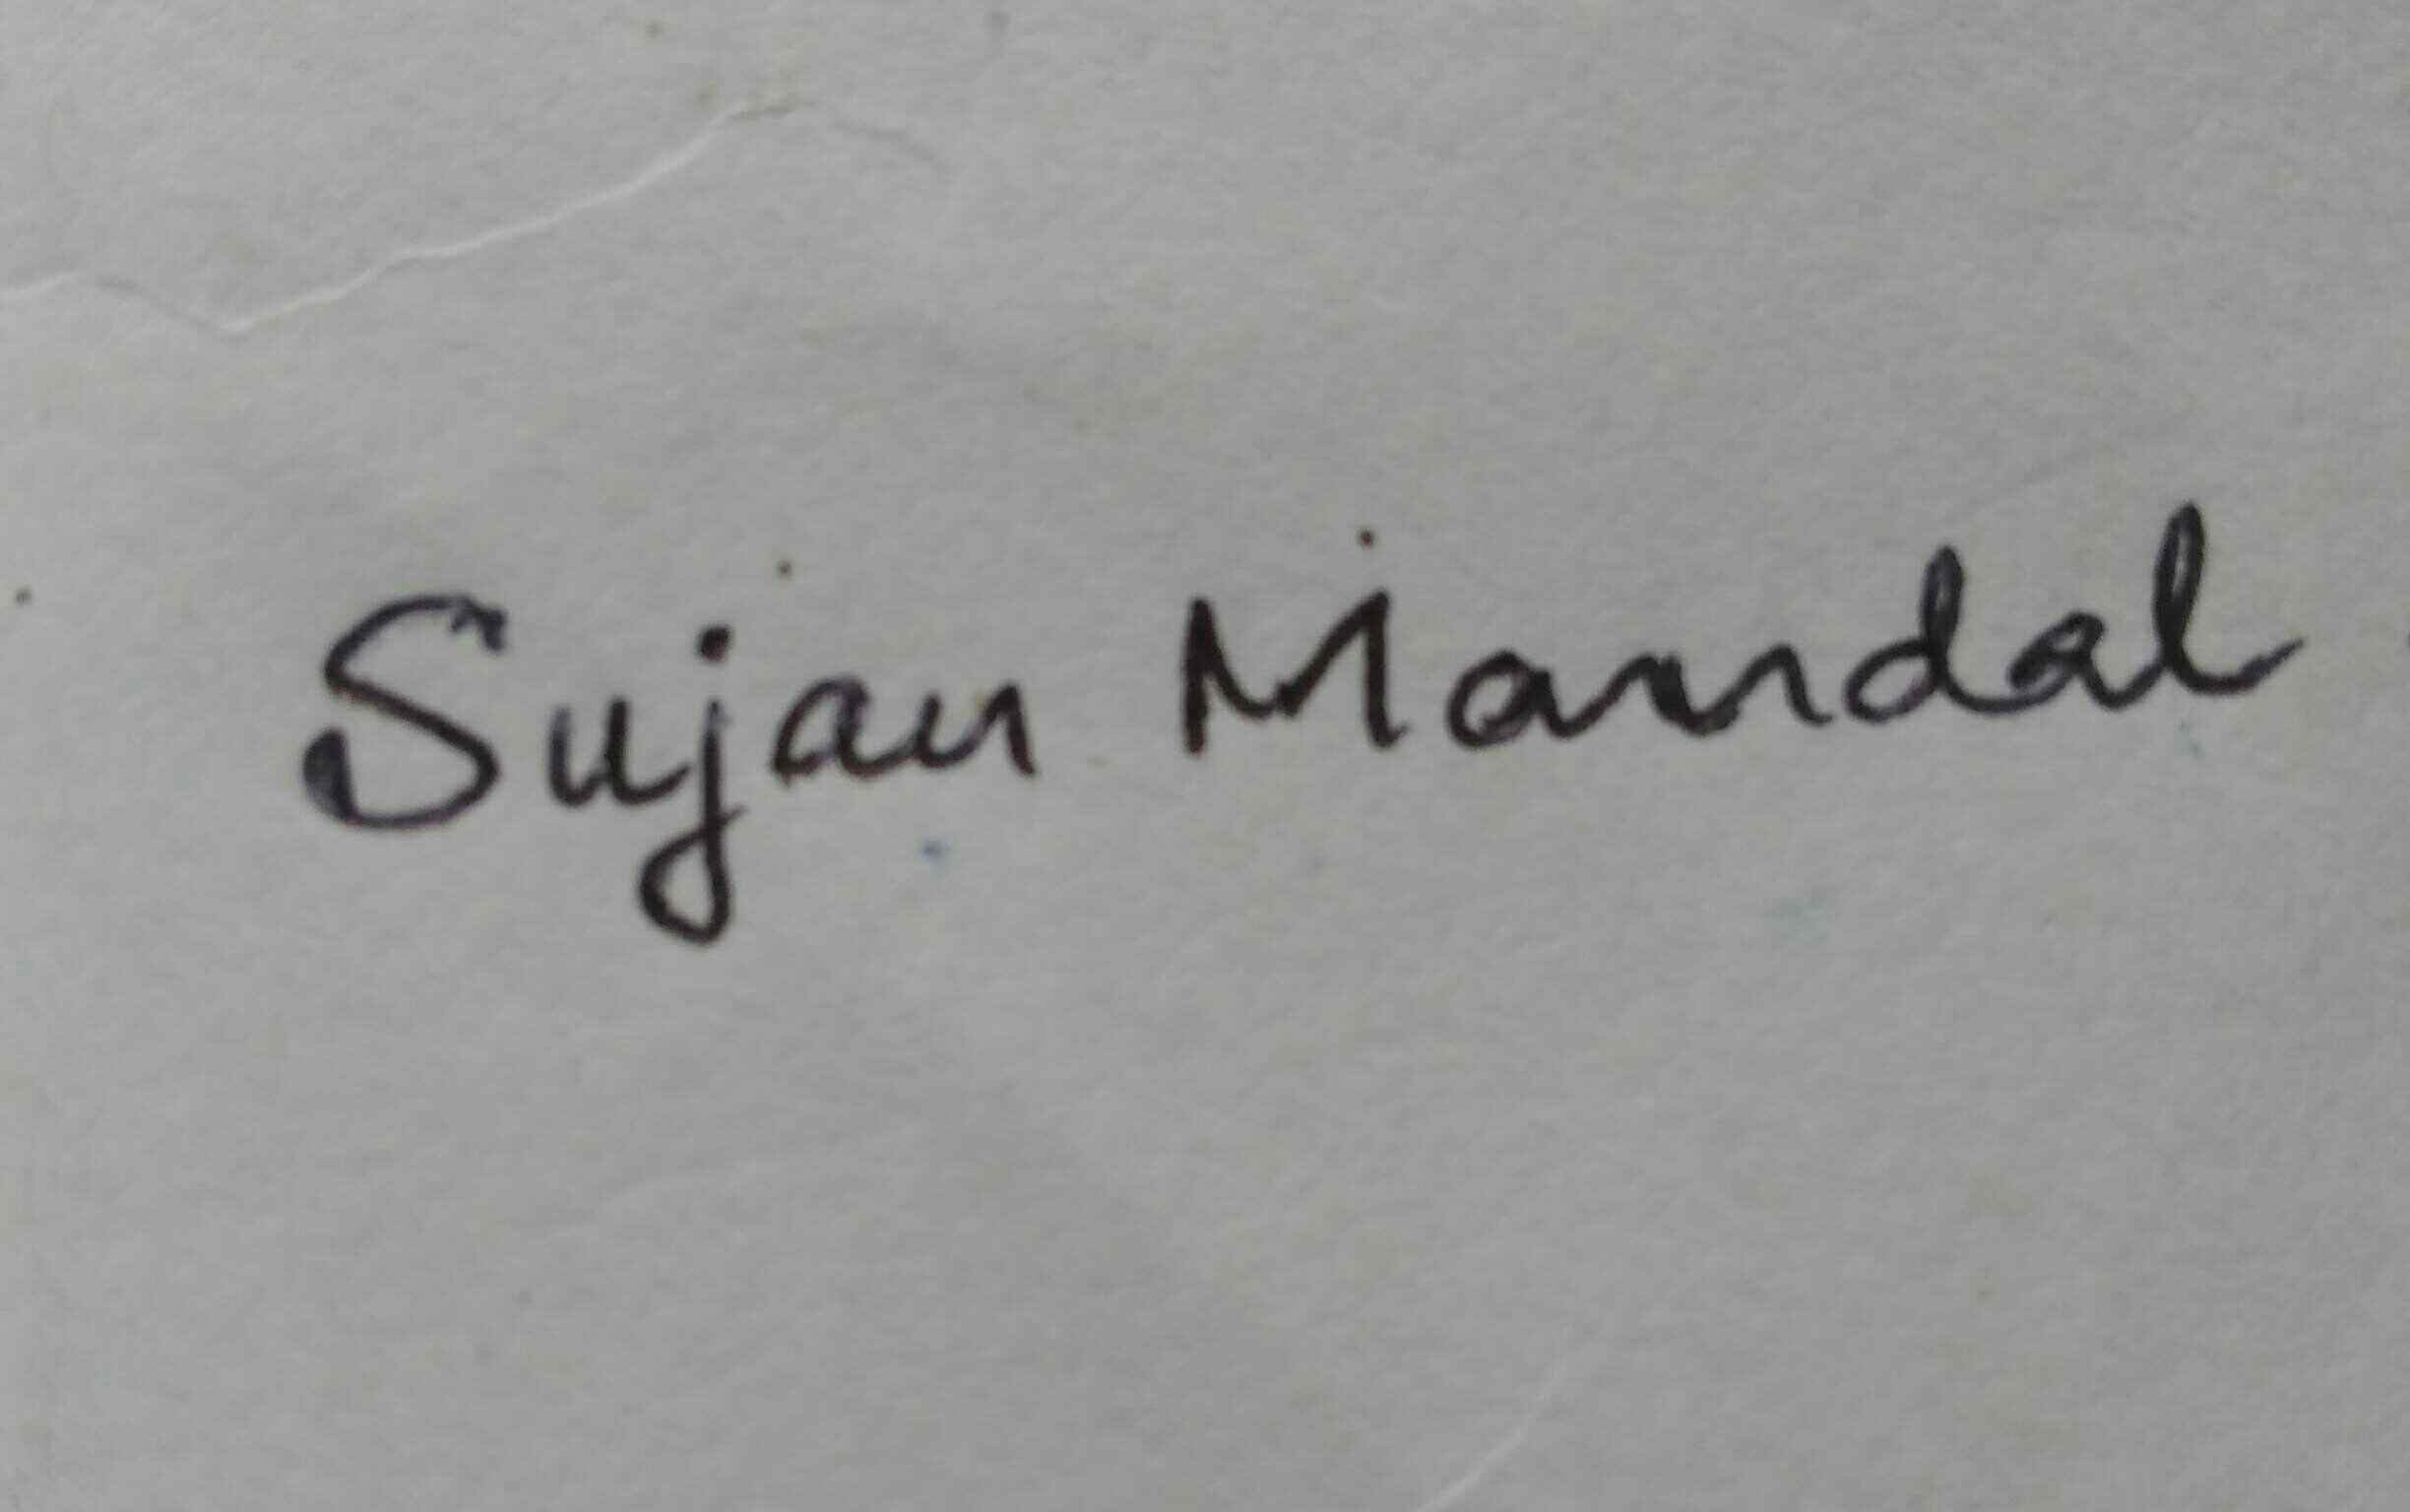 Sujan Mandal